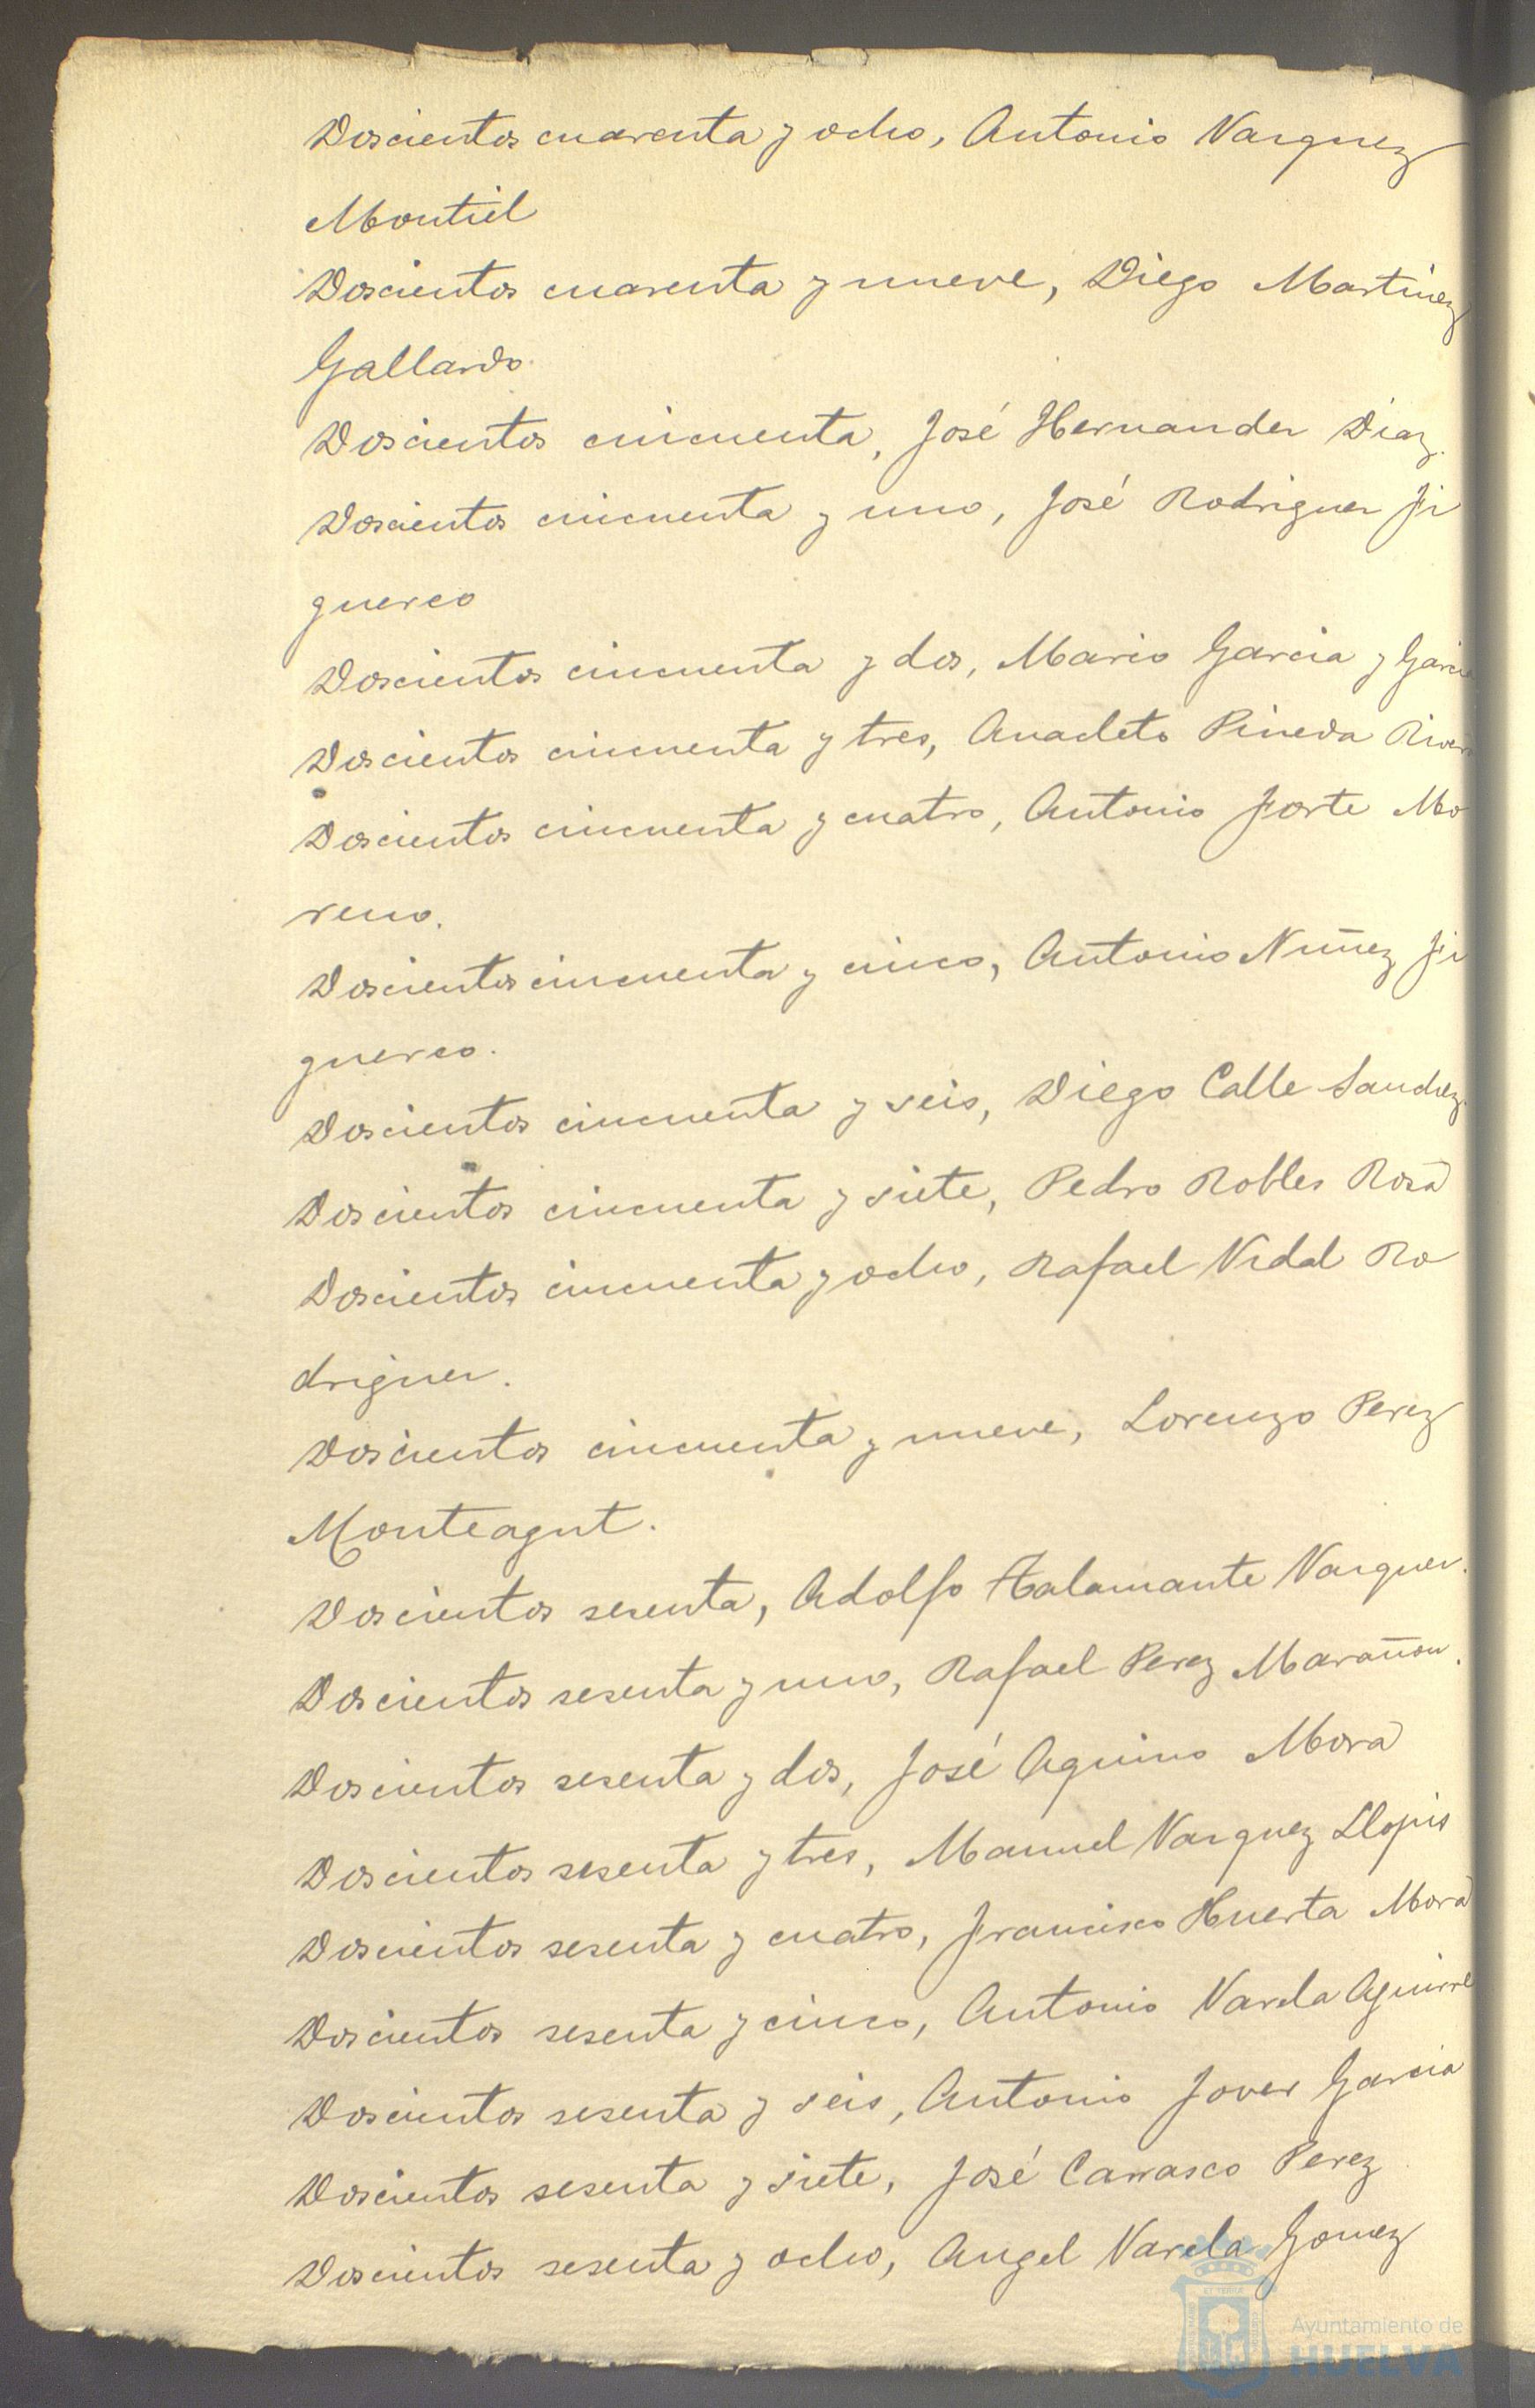 Doscientos cuarenta y ocho, Antonio Vazquez
Montiel
Doscientos cuarenta y nueve, Diego Martinez
Gallardo.
Doscientos cincuenta, José Hernandez Diaz.
Doscientos cincuenta y uno, José Rodriguez Fi
guereo
Doscientos cincuenta y dos, Mario Garcia y Garcia
Doscientos cincuenta y tres, Anacleto Pineda River
Doscientos cincuenta y cuatro, Antonio Forte Mo
reno.
Doscientos cincuenta y cinco, Antonio Nuñez Fi
guereo.
Doscientos cincuenta y seis, Diego Calle Sanchez.
Doscientos cincuenta y siete, Pedro Robles Rosa
Doscientos cincuenta y ocho, Rafael Vidal Ro
driguez.
Doscientos cincuenta y nueve, Lorenzo Perez
Monteagut.
Doscientos sesenta, Adolfo Talamante Vazquez.
Doscientos sesenta y uno, Rafael Perez Marañon.
Doscientos sesenta y dos, José Aquino Mora
Doscientos sesenta y tres, Manuel Vazquez Llopis
Doscientos sesenta y cuatro, Francisco Huerta Mora
Doscientos sesenta y cinco, Antonio Varela Aguirre
Doscientos sesenta y seis, Antonio Jover Garcia
Doscientos sesenta y siete, José Carrasco Perez
Doscientos sesenta y ocho, Angel Varela Gomez
Ayuntamiento de
HUELVA